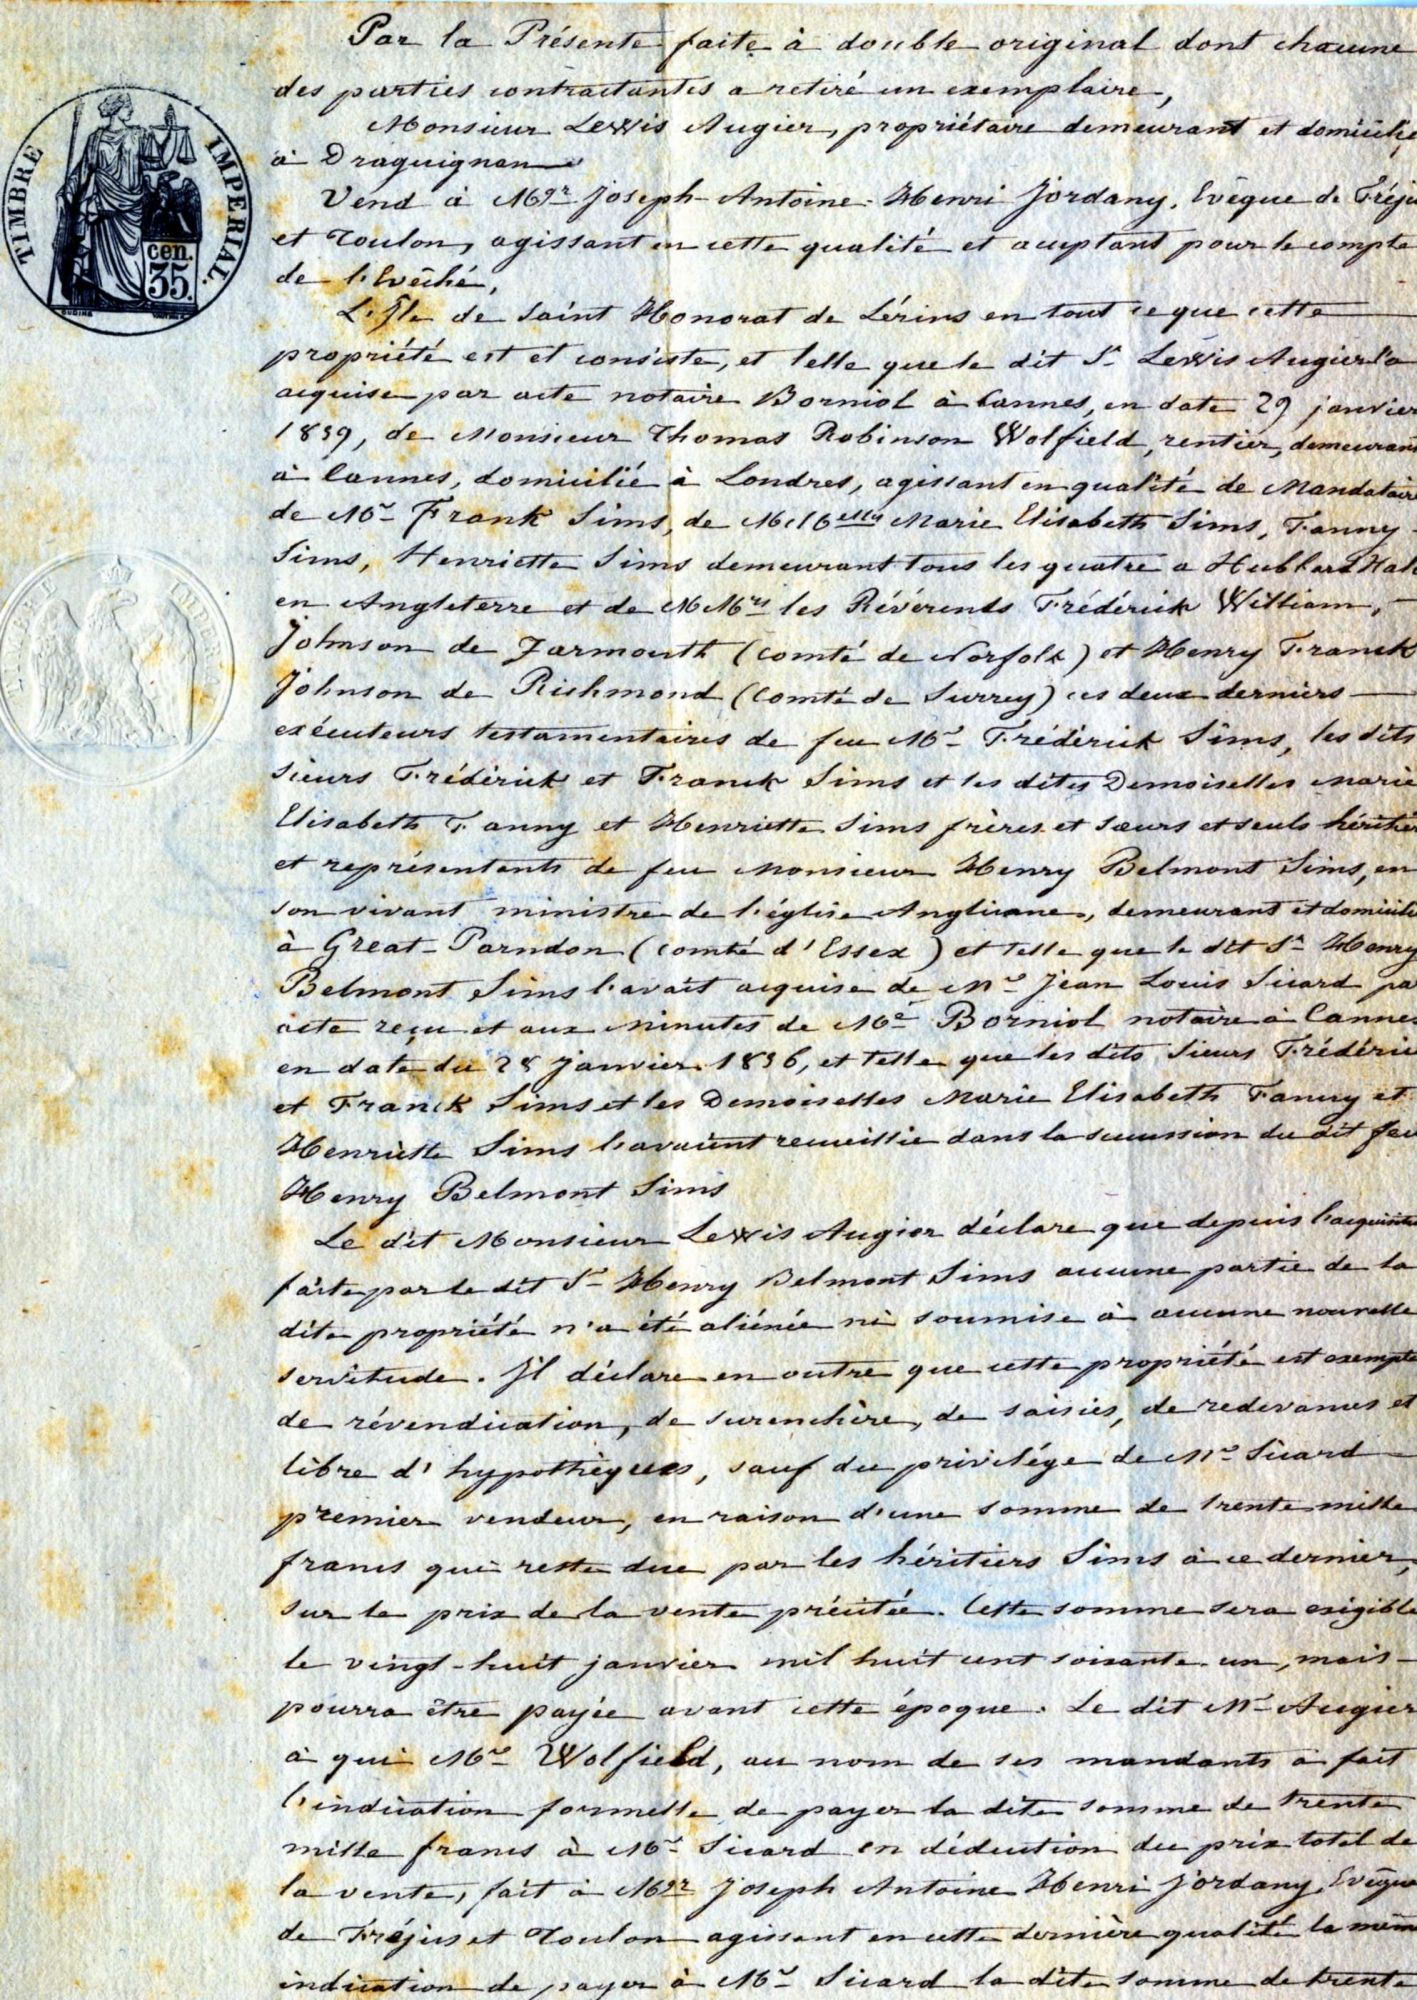 Par la Présente faite à double original dont chacune
des parties contractantes a retiré un exemplaire,
Monsieur Lewis Augier, propriétaire demeurant et domicilié
à Draguignan
Vend à Mgr Joseph-Antoine-Henri Jordany, Evêque de Fréju
et Toulon, agissant en cette qualité et acceptant pour le compte
de l'Evêché,
L'Île de Saint Honorat de Lérins en tout ce que cette
propriété est et consiste, et telle que le dit Sr Lewis Augier l'a
acquise par acte notaire Borniol à Cannes, en date 29 janvier
1859, de Monsieur Thomas Robinson Wolfield, rentier, demeurant
à Cannes, domicilié à Londres, agissant en qualité de Mandatair
de Mr Frank Sims, de MMelles Marie Elisabeth Sims, Fanny
Sims, Henriette Sims demeurant tous les quatre a Hubbard Hall
en Angleterre et de MMrs les Révérends Frédérick William,
Johnson de Yarmouth (comté de Norfolk) et Henry Franck
Johnson de Richmond (comté de Surrey) ces deux derniers
exécuteurs testamentaires de feu Mr Frédérick Sims, les dits
Sieurs Frédérick et Franck Sims et les dites Demoiselles Marie
Elisabeth Fanny et Henriette Sims frères et sœurs et seuls héritier
et représentants de feu Monsieur Henry Belmont Sims, en
son vivant ministre de l'église Anglicane, demeurant et domicilié
à Great-Parndon (comté d'Essex) et telle que le dit Sr Henry
Belmont Sims l'avait acquise de Mr Jean Louis Sicard pa
acte reçu et aux minutes de Me Borniol notaire à Cannes
en date du 28 Janvier 1856, et telle que les dits Sieurs Frédéric
et Franck Sims et les Demoiselles Marie Elisabeth Fanny et
Henriette Sims l'avaient recueillie dans la succession du dit feu
Henry Belmont Sims
Le dit Monsieur Lewis Augier déclare que depuis l'acquisition
faite par le dit Sr Henry Belmont Sims aucune partie de la
dite propriété n'a été aliénée ni soumise à aucune nouvelle
servitude. Il déclare en outre que cette propriété est exempte
de révendication, de surenchère, de saisies, de redevances et
libre d'hypothèques, sauf du privilége de Mr Sicard
premier vendeur, en raison d'une somme de trente mille
francs qui reste due par les héritiers Sims à ce dernier,
sur le prix de la vente précitée. Cette somme sera exigible
le vingt-huit janvier mil huit cent soixante un, mais
pourra être payée avant cette époque. Le dit Mr Augier
à qui Mr Wolfield, au nom de ses mandants a fait
l'indication formelle de payer la dite somme de trente
mille francs à Mr Sicard en déduction du prix total de
la vente, fait à Mgr Joseph Antoine Henri Jordany, Evêque
de Fréjus et Toulon agissant en cette dernière qualité la mêm
indication de payer à Mr Sicard la dite somme de trente
TIMBRE IMPERIAL.
cen.
35.
IMPERIAL